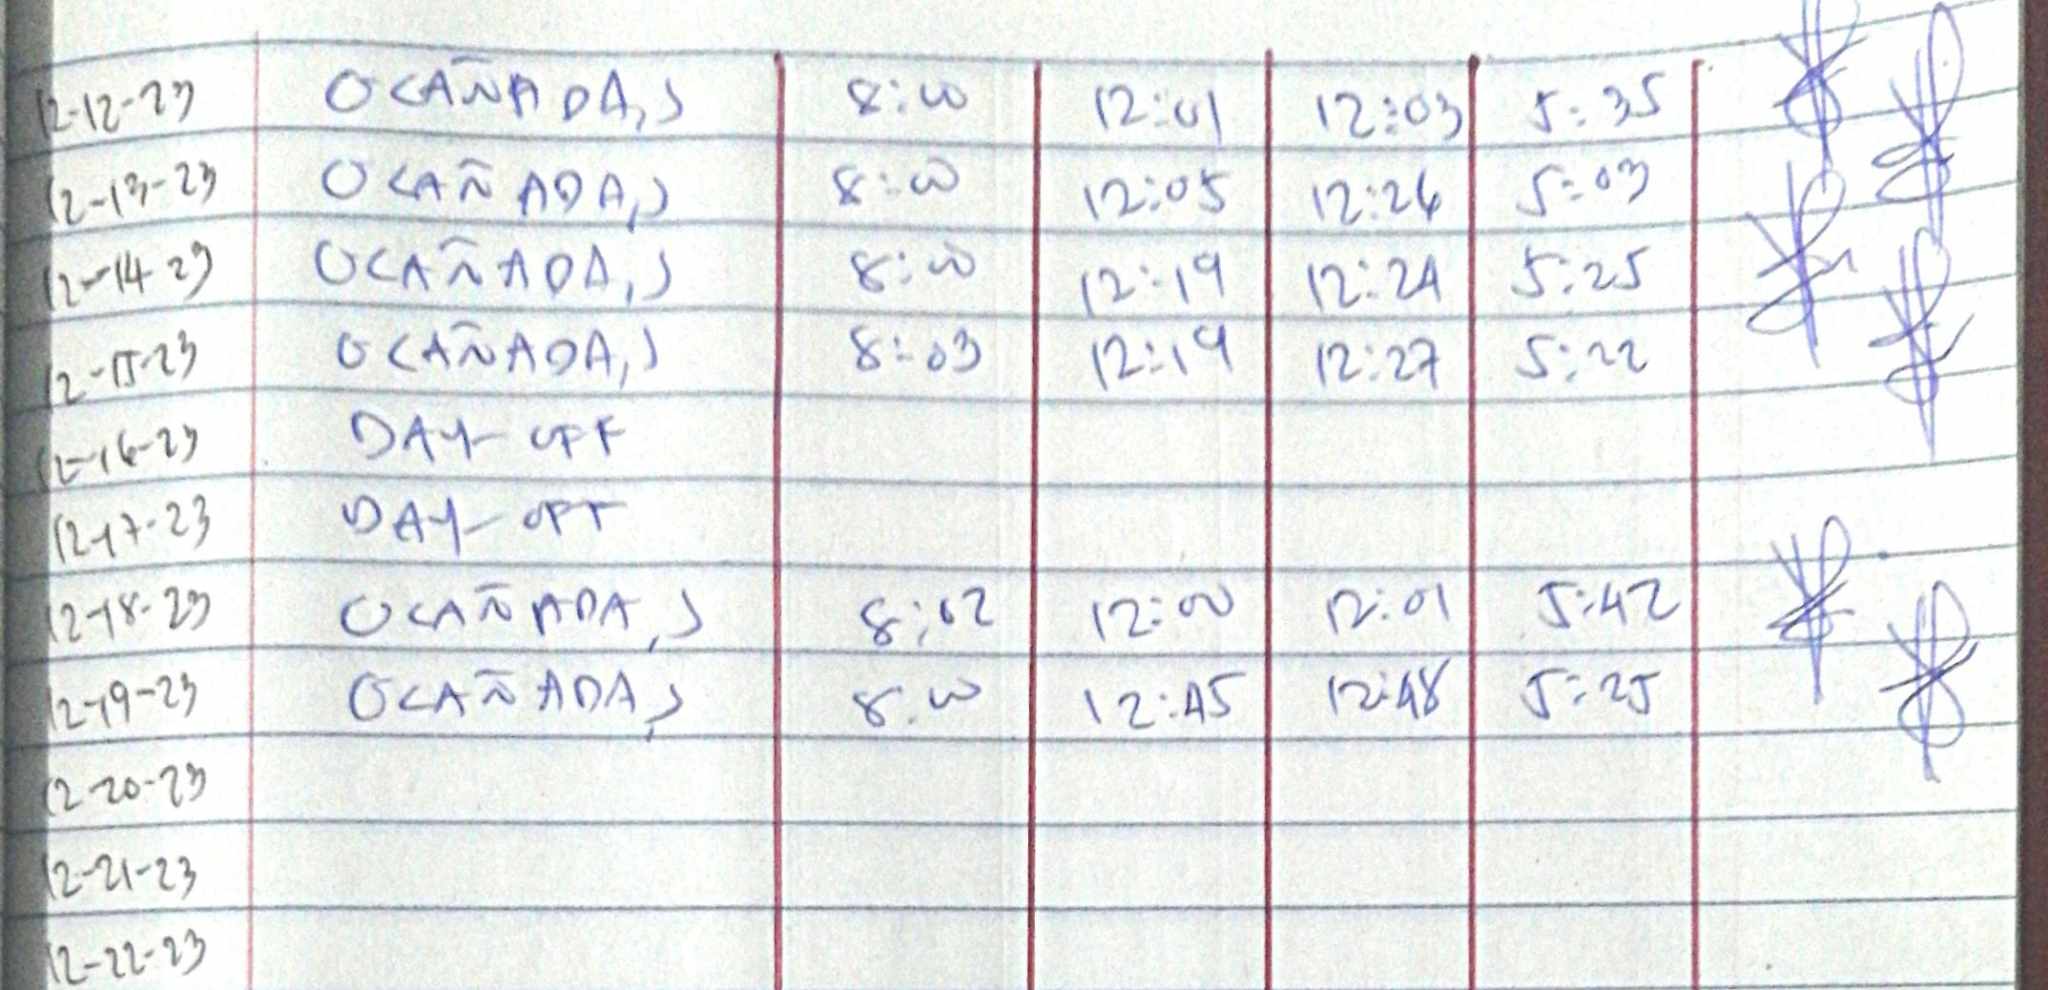 12-12-23 OCAÑADA, J 8:00 12:01 12:03 5:35
12-13-23 OCAÑADA, J 8:00 12:05 12:26 5:03
12-14-23 OCAÑADA, J 8:00 12:19 12:24 5:25
12-15-23 OCAÑADA, J 8:03 12:19 12:27 5:22
12-16-23 DAY-OFF
12-17-23 DAY-OFF
12-18-23 OCAÑADA, J 8:02 12:00 12:01 5:42
12-19-23 OCAÑADA, J 8:00 12:45 12:48 5:25
12-20-23
12-21-23
12-22-23